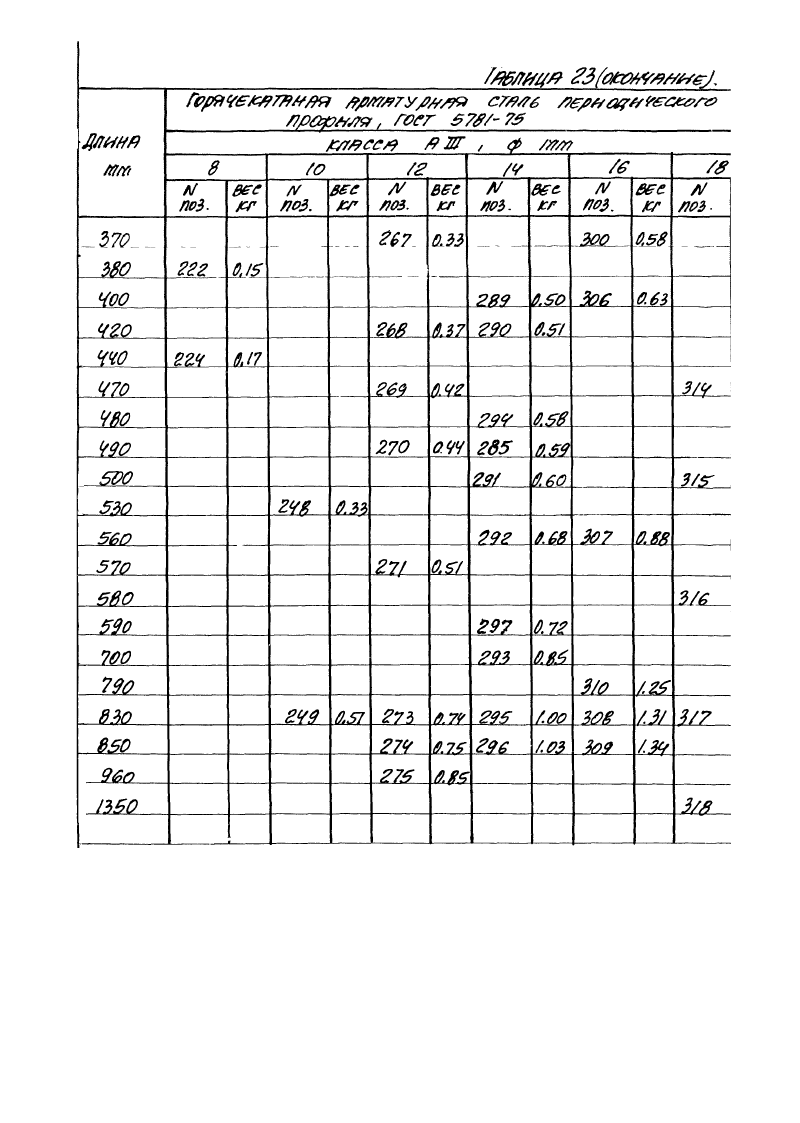 Таблица 23 (окончание).
Горячекатаная арматурная сталь периодического
профиля, ГОСТ 5781-75
Длина
мм
класса А III, ф мм
8 10 12 14 16 18
N поз. вес кг N поз. вес кг N поз. вес кг N поз. вес кг N поз. вес кг N поз.
370 267 0.33 300 0.58
380 222 0.15
400 289 0.50 306 0.63
420 268 0.37 290 0.51
440 224 0.17
470 269 0.42 314
480 294 0.58
490 270 0.44 285 0.59
500 291 0.60 315
530 248 0.33
560 292 0.68 307 0.88
570 271 0.51
580 316
590 297 0.72
700 293 0.85
790 310 1.25
830 249 0.51 273 0.74 295 1.00 308 1.31 317
850 274 0.75 296 1.03 309 1.34
960 275 0.85
1350 318